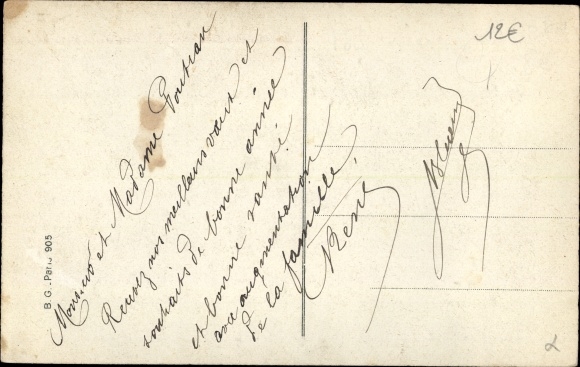 Monsieur et Madame Poutrau
Recevez nos meilleurs vœux et
souhaits de bonne année
et bonne santé
avec augmentation
de la famille,
René
12€
B.G., Paris 905